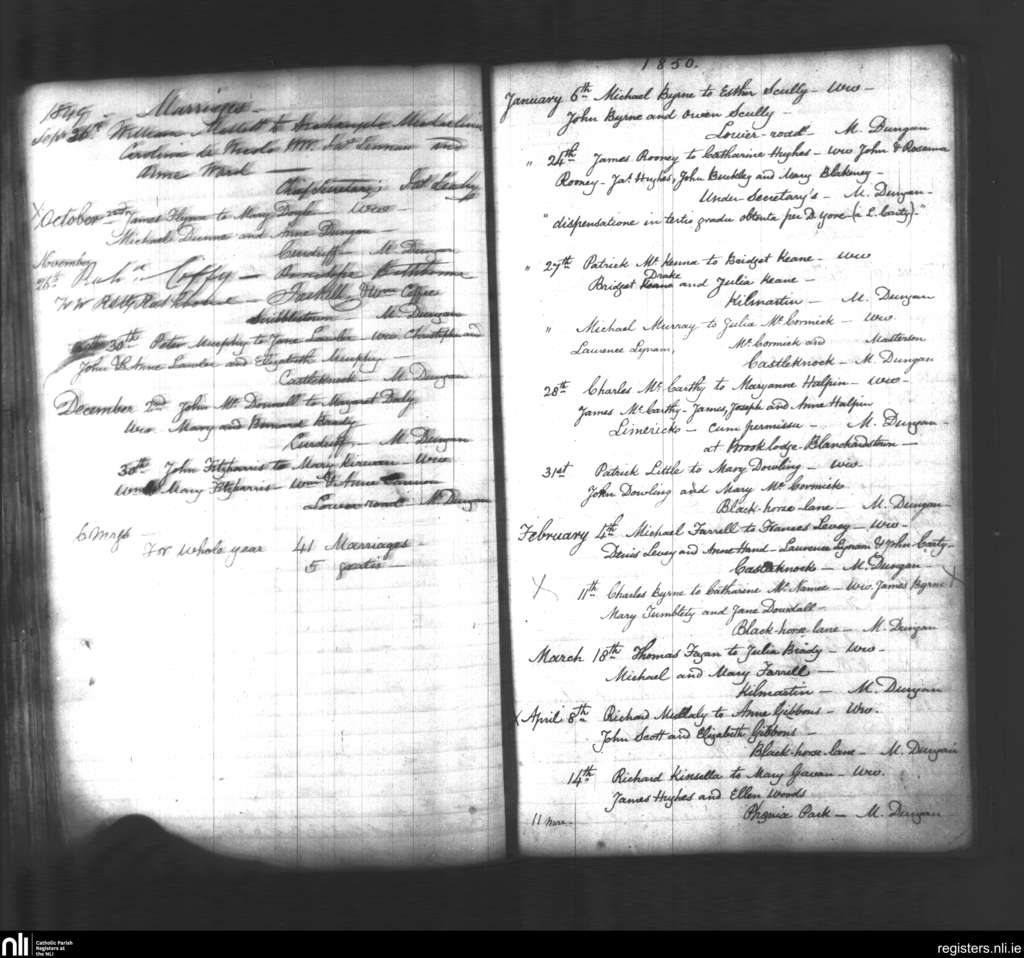 1849 - Marriages -
Sept 26th William to
Caroline de Jas. Lennan and
Anne Ward -
Chief Secretary's Jas
X October 22nd James Flynn to Mary Doyle - Ww -
Michael Dunne and Anne Dungan -
Cardiff - M. Dungan
November
26th Coffy -
M. Dungan
30th Peter Murphy to Jane Lawler - Wws Christopher and
John & Anne Lawler and Elizabeth Murphy -
Castleknock - M. Dungan
December 2nd John McDonnell to Margaret Daly
Wws. Mary and Bernard Brady
Cardiff - M. Dungan
30th John Fitzharris to Mary Kirwan - Wws
Mary Fitzharris - Wm & Anne Cannon
Lower road - M. Dungan
6 Marrgs -
For whole year 41 Marriages -
5 gratis -
1850.
January 6th Michael Byrne to Esther Scully - Ww -
John Byrne and Owen Scully -
Lower-road - M. Dungan
" 24th James Rooney to Catharine Hughes - Ww John & Rosanna
Rooney - Jas. Hughes, John Buckley and Mary Blakeney -
Under Secretary's - M. Dungan -
"dispensatione in tertio gradu obtenta per D Yore (a L. Carty)."
" 27th Patrick McKenna to Bridget Keane - Ww
Drake
Bridget Keane and Julia Keane -
Kilmartin - M. Dungan
" Michael Murray to Julia McCormick - Ww.
Laurence Lynam, McCormick and Masterson
Castleknock - M. Dungan
28th Charles McCarthy to Maryanne Halpin - Ww -
James McCarthy - James, Joseph and Anne Halpin
Limericks - cum permissu - M. Dungan -
at Brooklodge Blanchardstown -
31st Patrick Little to Mary Dowling - Ww.
John Dowling and Mary McCormick
Black-horse-lane - M. Dungan -
February 4th Michael Farrell to Frances Levey - Ww -
Denis Levey and Anne Hand - Laurence Lynam & John Carty -
Castleknock - M. Dungan -
X 11th Charles Byrne to Catharine McNamee - Ww. James Byrne X
Mary Tumblety and Jane Dowdall -
Black-horse-lane - M. Dungan
March 18th Thomas Fagan to Julia Brady - Ww -
Michael and Mary Farrell -
Kilmartin - M. Dungan
X April 8th Richard Mullaly to Anne Gibbons - Ww.
John Scott and Elizabeth Gibbons -
Black-horse-lane - M. Dungan
14th Richard Kinsella to Mary Gavan - Ww.
James Hughes and Ellen Woods
Phoenix Park - M. Dungan
11 Marr.
nli Catholic Parish
Registers at
the NLI
registers.nli.ie